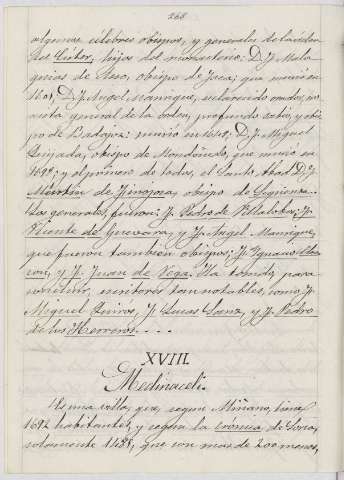 268
algunos célebres obispos, y generales de la órden
del Císter, hijos del monasterio: D. F. Mala-
quias de Aso, obispo de Jaca; que murió en
D. F. Angel Manrique, esclarecido orador, co-
nista general de la órden, profundo sabio, y obis
po de Badajoz: murió en 1649: D. F. Miguel
Quijada, obispo de Mondoñedo, que murió en
y el primero de todos, el Santo Abad D. F.
Martin de Finojosa, obispo de Sigüenza.
Los generales, fueron: F. Pedro de Villalobos; F.
Vicente de Guevara, y F. Angel Manrique,
que fueron tambien obispos; F. Ignacio
y F. Juan de Vega. para
concluir, escritores tan notables, como F.
Miguel Quirós, F. Lucas Sanz, y F. Pedro
de los Herreros....
XVIII.
Medinaceli.
Es una villa, que, segun Miñano, tiene
1692 habitantes, y segun la crónica de Soria,
solamente 1458, que son mas de 200 menos,